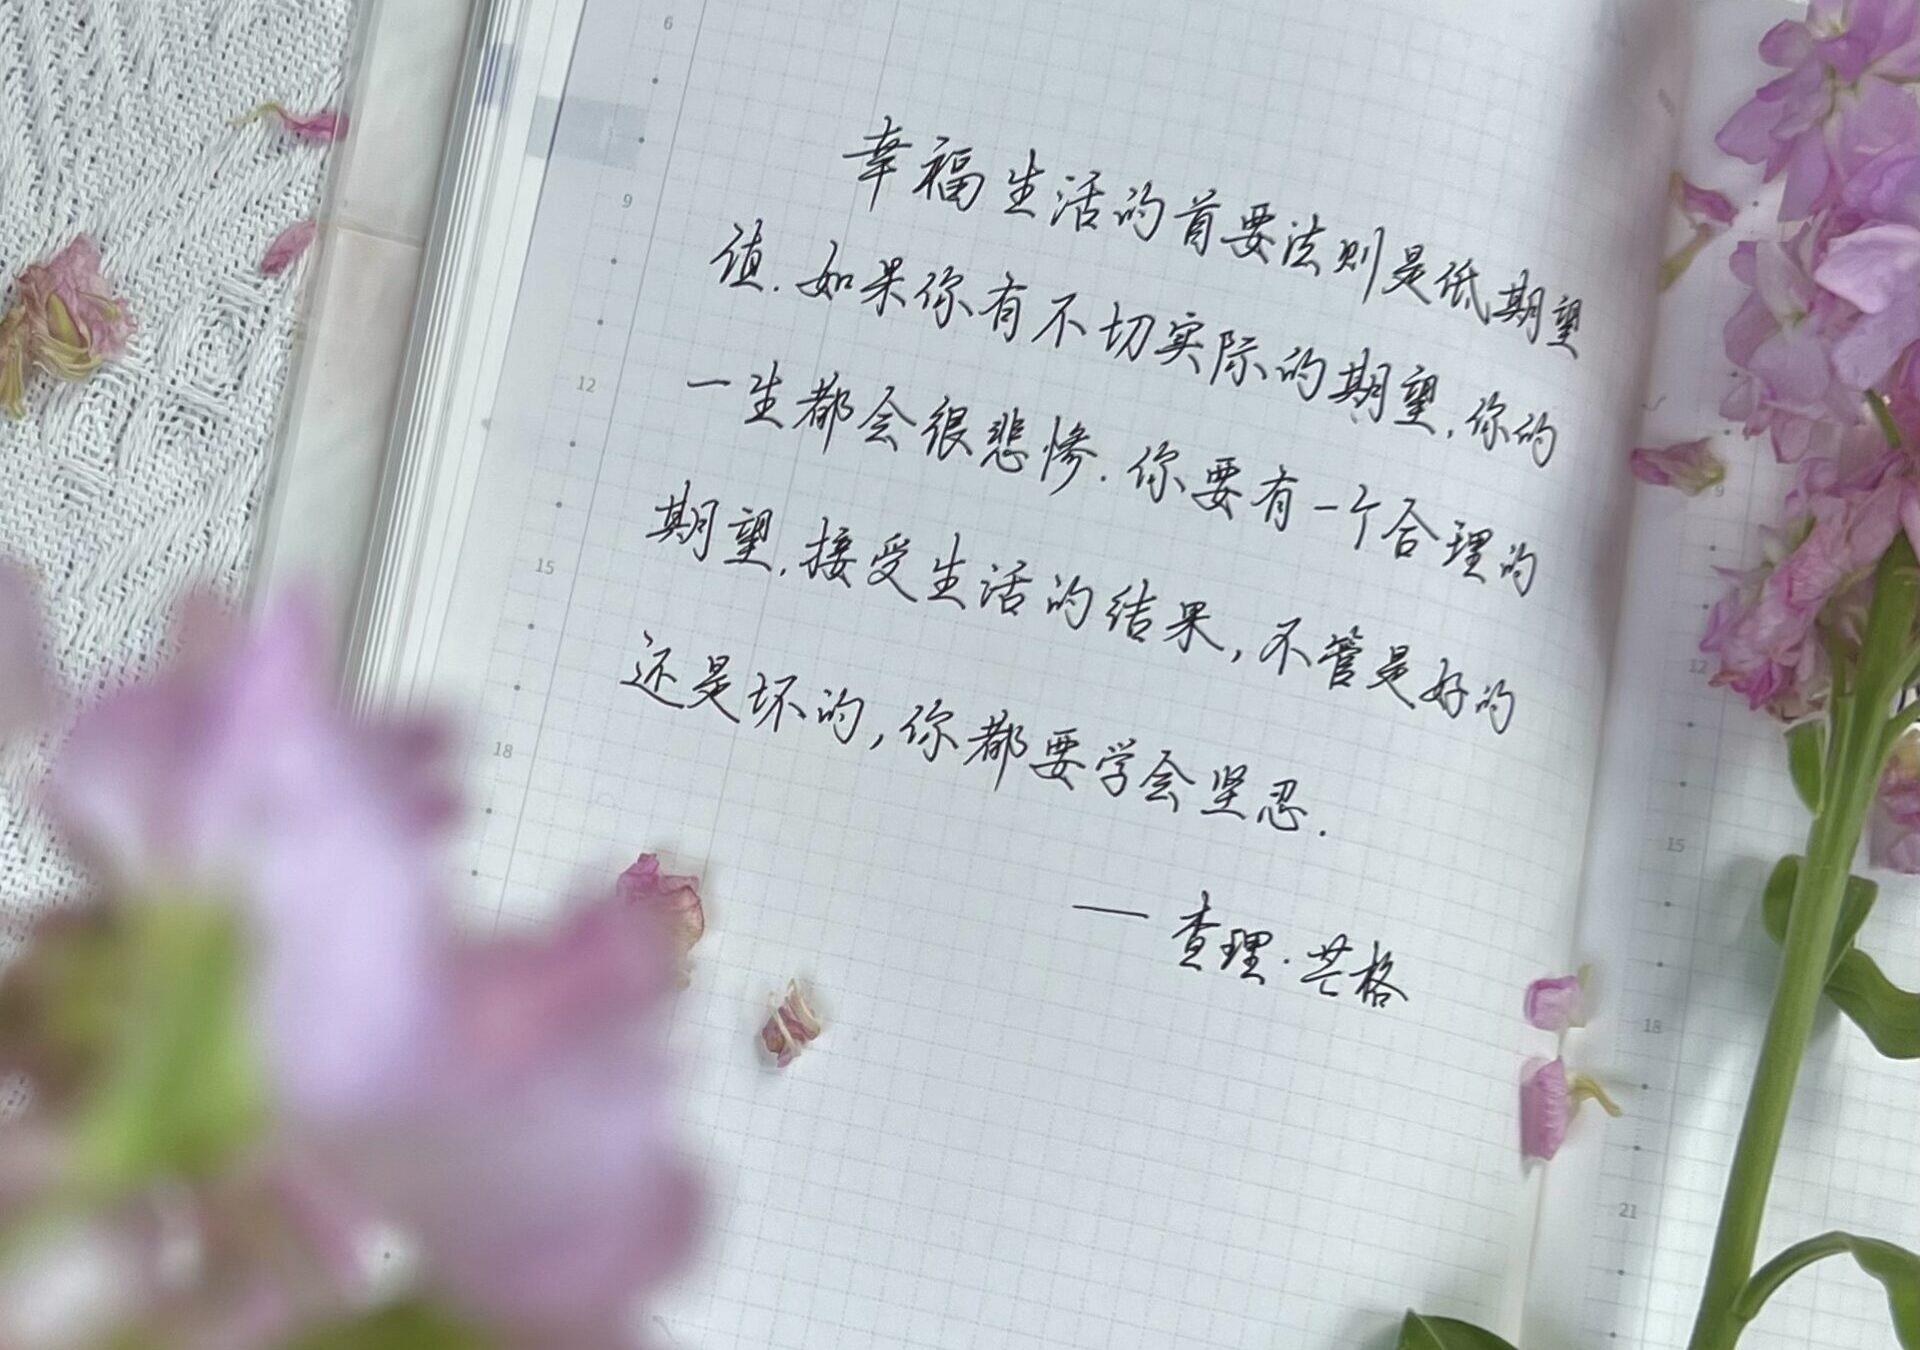 幸福生活的首要法则是低期望
值.如果你有不切实际的期望,你的
一生都会很悲惨.你要有一个合理的
期望,接受生活的结果,不管是好的
还是坏的,你都要学会坚忍.
—查理·芒格
6
9
12
15
18
9
12
15
18
21